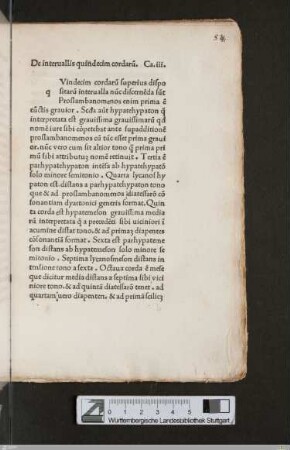 De interuallis quindecim cordarũ. Ca.iii.
Vindecim cordarũ superius dispo
q sitarũ interualla nũc discernẽda sũt
Proslambanomenos enim prima ẽ
cũctis grauior. Scđa aũt hypatehypatõ
interpretata est grauissima grauissimarũ qđ
nomẽ iure sibi cõpetebat ante supadditionẽ
proslambanomenos cũ tũc esset prima graui
or. nũc vero cum sit altior tono prima pri
mũ sibi attributuȝ nomẽ retinuit. Tertia ẽ
parhypatehypaton intẽsa ab hypatehypatõ
solo minore semitonio. Quarta lycanos hy
paton est. distans a parhypatehypaton tono
que & ad proslambanomenos diatessarõ cõ
sonantiam dyatonici generis format. Quin
ta corda est hypatemeson grauissima media
rũ interpretata q̃ a precedẽti sibi viciniori ĩ
acumine distat tono. & ad primaȝ diapentes
cõsonantiã format. Sexta est parhypateme
son distans ab hypatemeson solo minore se
mitonio. Septima lycanosmeson distans in
tensione tono a sexta. Octaua corda ẽ mese
que dicitur media distans a septima sibi vici
niore tono. & ad quintã diatessarõ tenet. ad
quartam vero diapenten. & ad primã scilicȝ
Württembergische Landesbibliothek Stuttgart